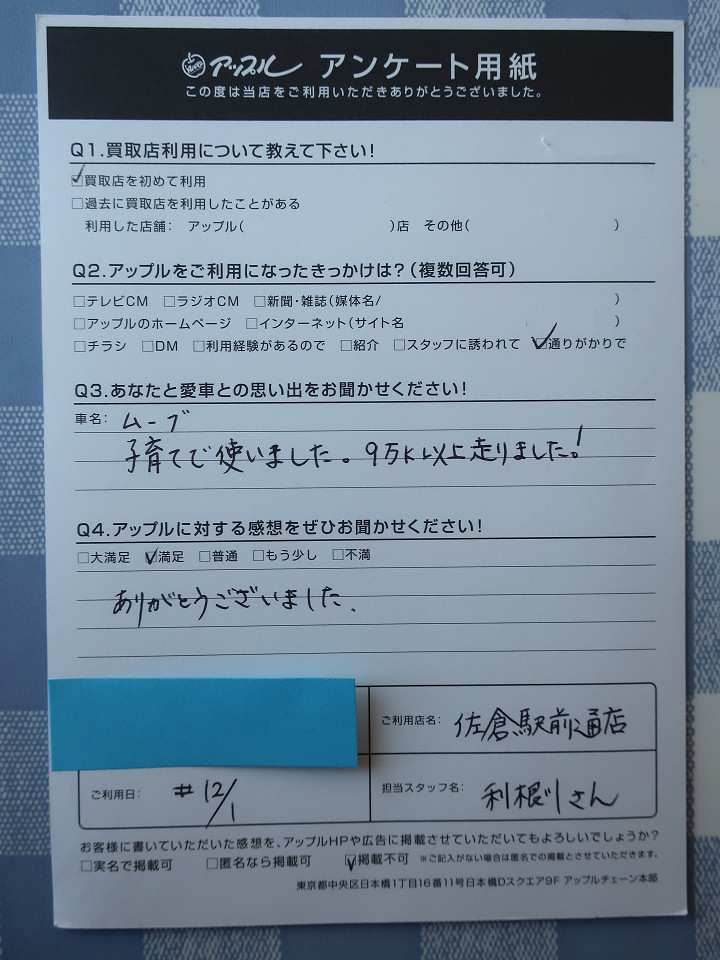 アップル アンケート用紙
この度は当店をご利用いただきありがとうございました。
Q1.買取店利用について教えて下さい！
☑買取店を初めて利用
□過去に買取店を利用したことがある
利用した店舗： アップル（ ）店 その他（ ）
Q2.アップルをご利用になったきっかけは？（複数回答可）
□テレビCM □ラジオCM □新聞・雑誌（媒体名/ ）
□アップルのホームページ □インターネット（サイト名 ）
□チラシ □DM □利用経験があるので □紹介 □スタッフに誘われて ☑通りがかりで
Q3.あなたと愛車との思い出をお聞かせください！
車名： ムーブ
子育てで使いました。9万K以上走りました！
Q4.アップルに対する感想をぜひお聞かせください！
□大満足 ☑満足 □普通 □もう少し □不満
ありがとうございました。
ご利用店名： 佐倉駅前通店
ご利用日： 12/1
担当スタッフ名： 利根川さん
お客様に書いていただいた感想を、アップルHPや広告に掲載させていただいてもよろしいでしょうか？
□実名で掲載可 □匿名なら掲載可 ☑掲載不可 ※ご記入がない場合は匿名での掲載とさせていただきます。
東京都中央区日本橋1丁目16番11号日本橋Dスクエア9F アップルチェーン本部